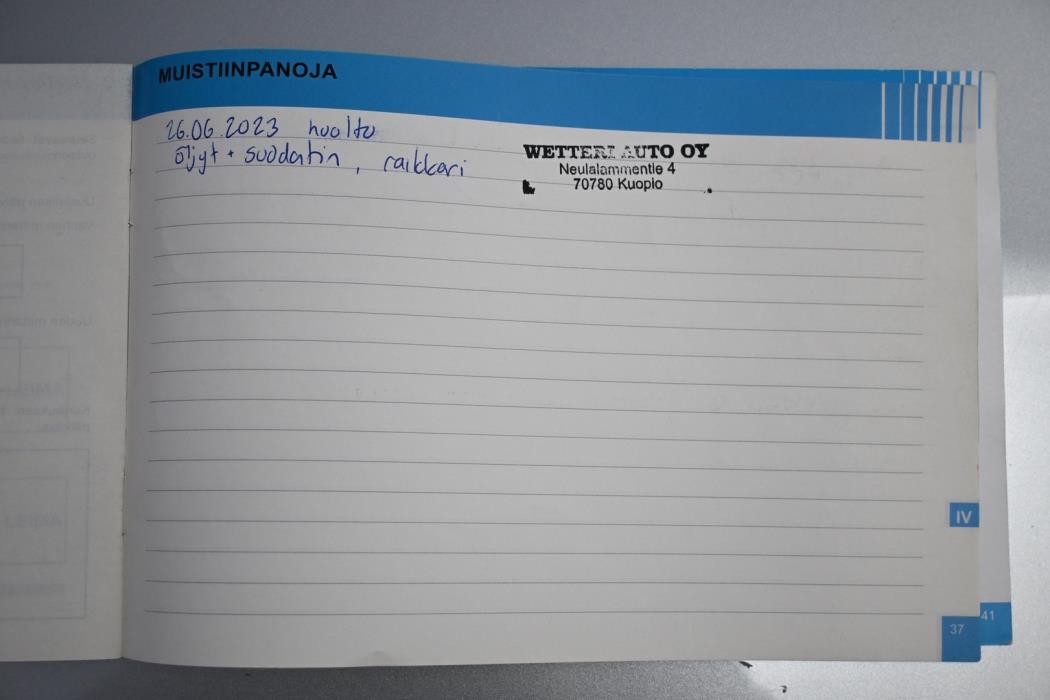 MUISTIINPANOJA
26.06.2023 huolto
öljyt + suodatin, raikkari
WETTERI AUTO OY
Neulalammentie 4
70780 Kuopio
IV
37
41